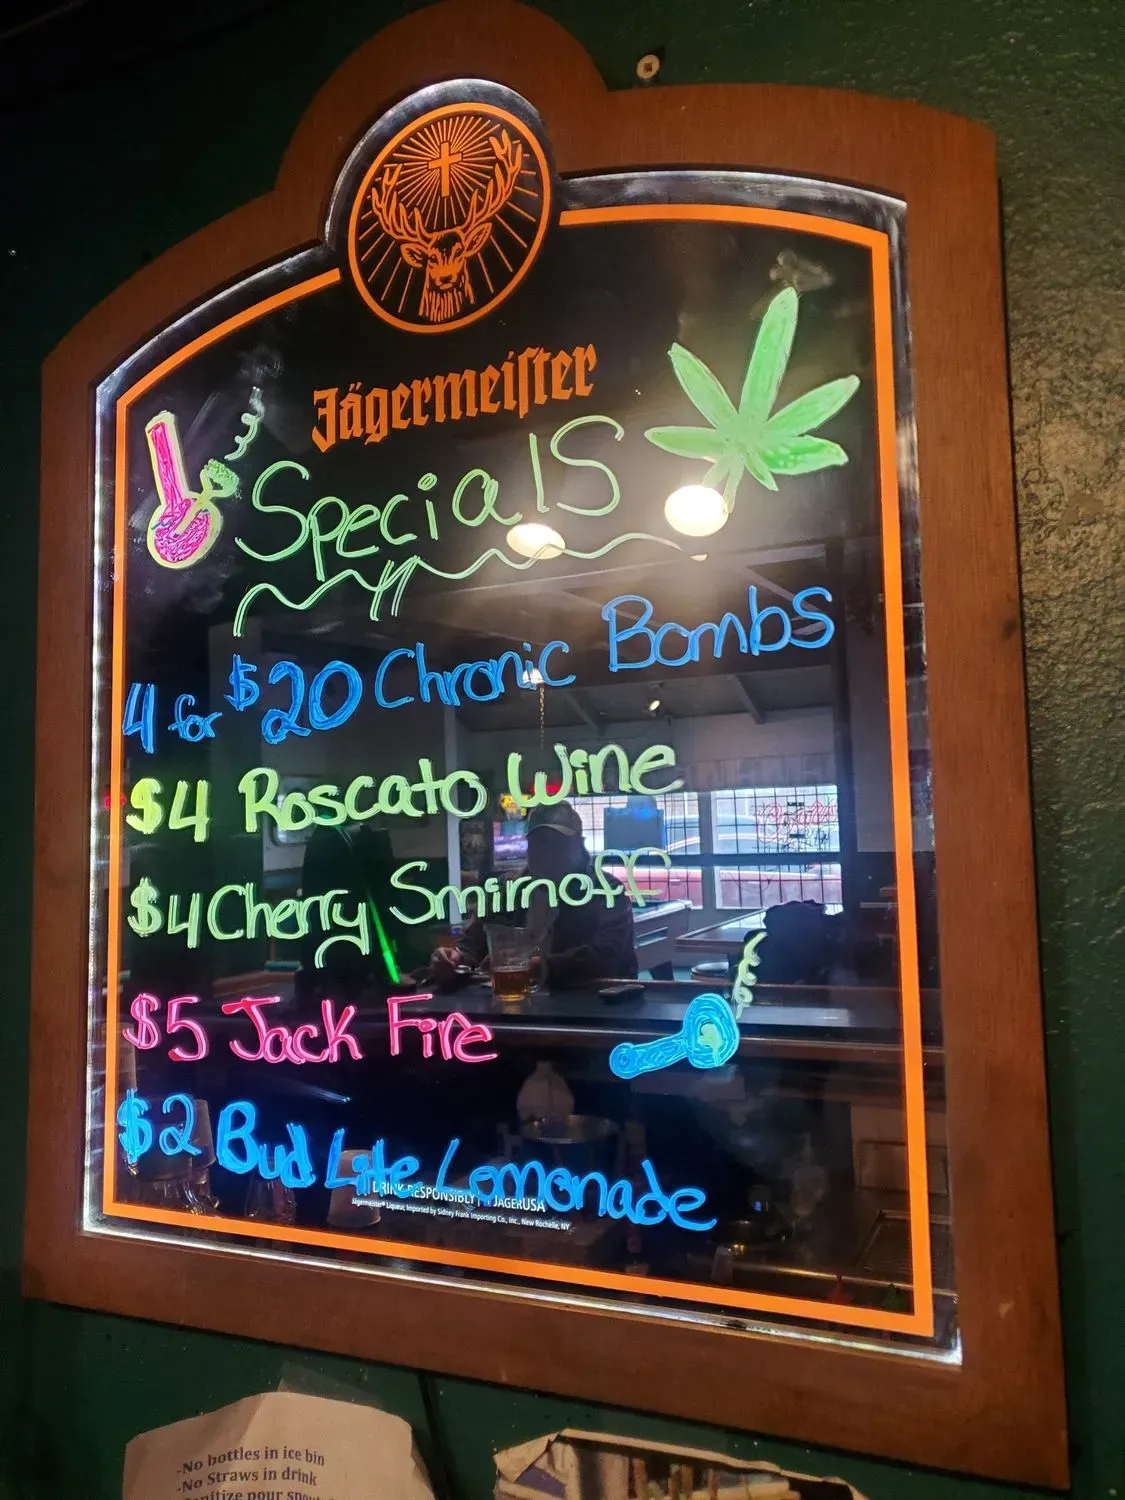 Jägermeister
Specials
4 for $20 Chronic Bombs
$4 Roscato Wine
$4 Cherry Smirnoff
$5 Jack Fire
$2 Bud Lite Lomonade
DRINK RESPONSIBLY JAGERUSA
Jägermeister® Liqueur, Imported by Sidney Frank Importing Co., Inc., New Rochelle, NY
-No bottles in ice bin
-No Straws in drink